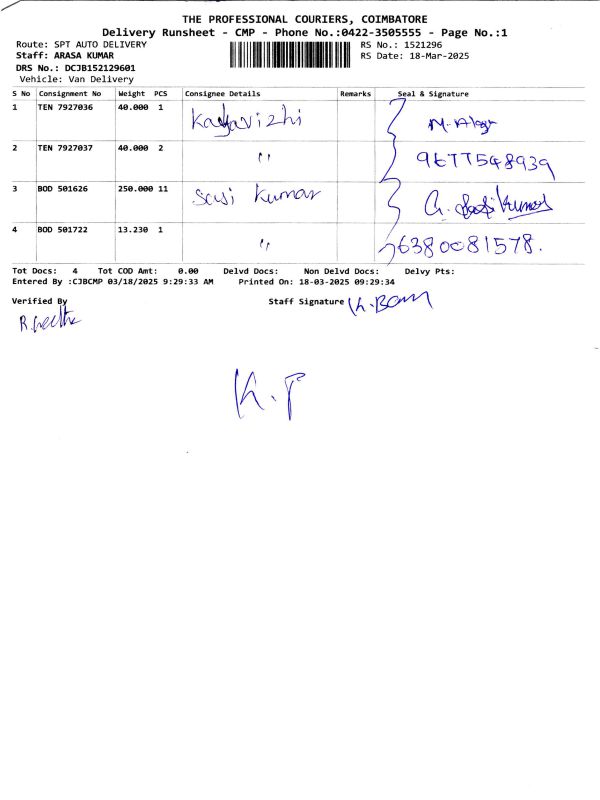 THE PROFESSIONAL COURIERS, COIMBATORE
Delivery Runsheet - CMP - Phone No.:0422-3505555 - Page No.:1
Route: SPT AUTO DELIVERY
Staff: ARASA KUMAR
DRS No.: DCJB152129601
Vehicle: Van Delivery
RS No.: 1521296
RS Date: 18-Mar-2025
S No Consignment No Weight PCS Consignee Details Remarks Seal & Signature
1 TEN 7927036 40.000 1 Kayavizhi
2 TEN 7927037 40.000 2 " 9677548939
3 BOD 501626 250.000 11 Sasi Kumar
4 BOD 501722 13.230 1 " 6380081578.
Tot Docs: 4 Tot COD Amt: 0.00 Delvd Docs: Non Delvd Docs: Delvy Pts:
Entered By :CJBCMP 03/18/2025 9:29:33 AM Printed On: 18-03-2025 09:29:34
Verified By Staff Signature
K.P